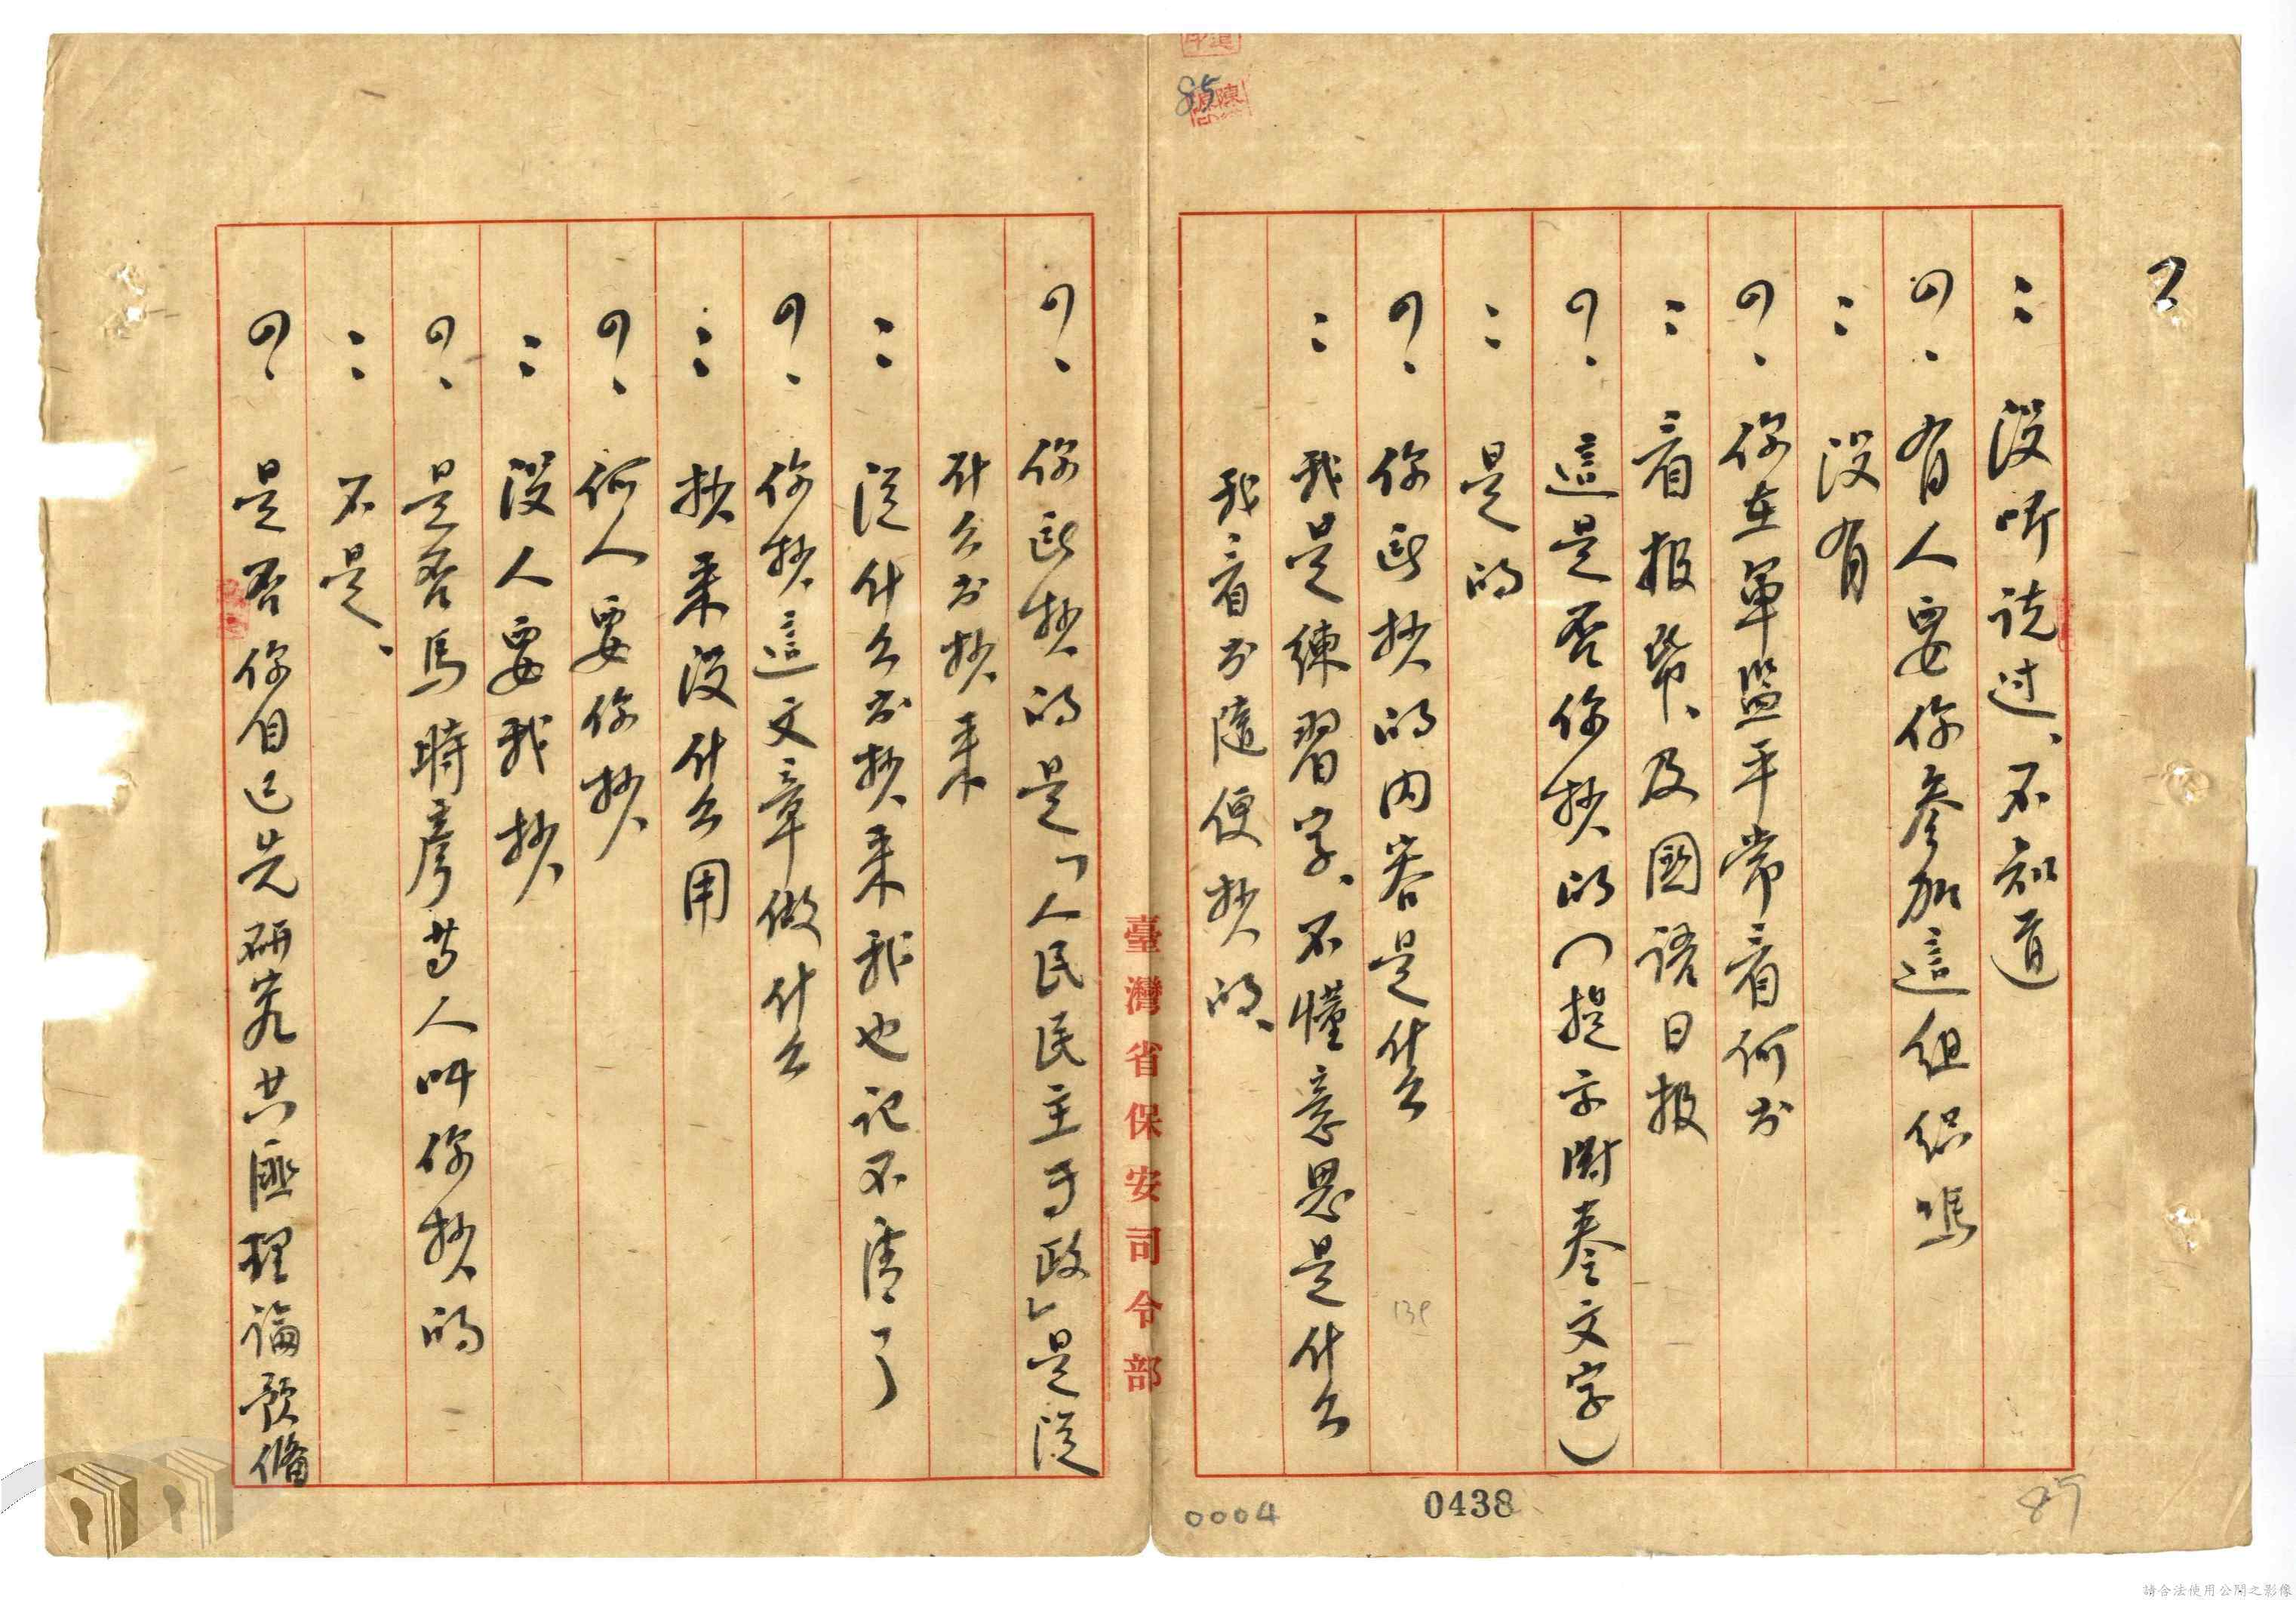 ：没听説过、不知道
？．有人要你参加這组织嗎
：没有
？．你在軍监平常看何书
：看报幣、及國語日报
？．這是否你抄的（提示附卷文字）
：是的
？．你所抄的内容是什么
：我是練習字、不懂意思是什么
我看书隨便抄的、
？．你所抄的是「人民民主专政」是從
什么书抄来
：從什么书抄来我也记不清了
？．你抄這文章做什么
：抄来没什么用
？．何人要你抄
：没人要我抄
？．是否馬時彦等人叫你抄的
：不是、
？．是否你自己先研究共匪理論預備
臺灣省保安司令部
85
0004
0438
85
請合法使用公開之影像